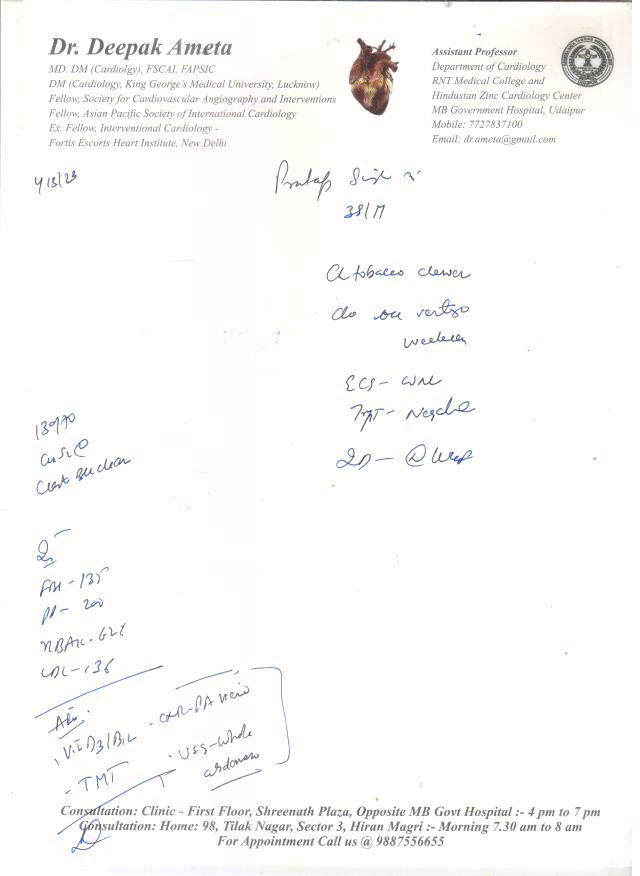 Dr. Deepak Ameta
MD. DM (Cardiolgy), FSCAI, FAPSIC
DM (Cardiology, King George's Medical University, Lucknow)
Fellow, Society for Cardiovascular Angiography and Interventions
Fellow, Asian Pacific Society of International Cardiology
Ex. Fellow, Interventional Cardiology -
Fortis Escorts Heart Institute, New Delhi
Assistant Professor
Department of Cardiology
RNT Medical College and
Hindustan Zinc Cardiology Center
MB Government Hospital, Udaipur
Mobile: 7727837100
Email: dr.ameta@gmail.com
Pratap Singh
38/M
tobacco chewer
c/o vertigo
weakness
ECG - WNL
TMT - Negative
2D -
130/90
Chest B/L clear
PP - 200
LDL - 136
Adv.
. Vit D3/B12
- CXR-PA view
- TMT
. USG-Whole
abdomen
Consultation: Clinic - First Floor, Shreenath Plaza, Opposite MB Govt Hospital :- 4 pm to 7 pm
Consultation: Home: 98, Tilak Nagar, Sector 3, Hiran Magri :- Morning 7.30 am to 8 am
For Appointment Call us @ 9887556655